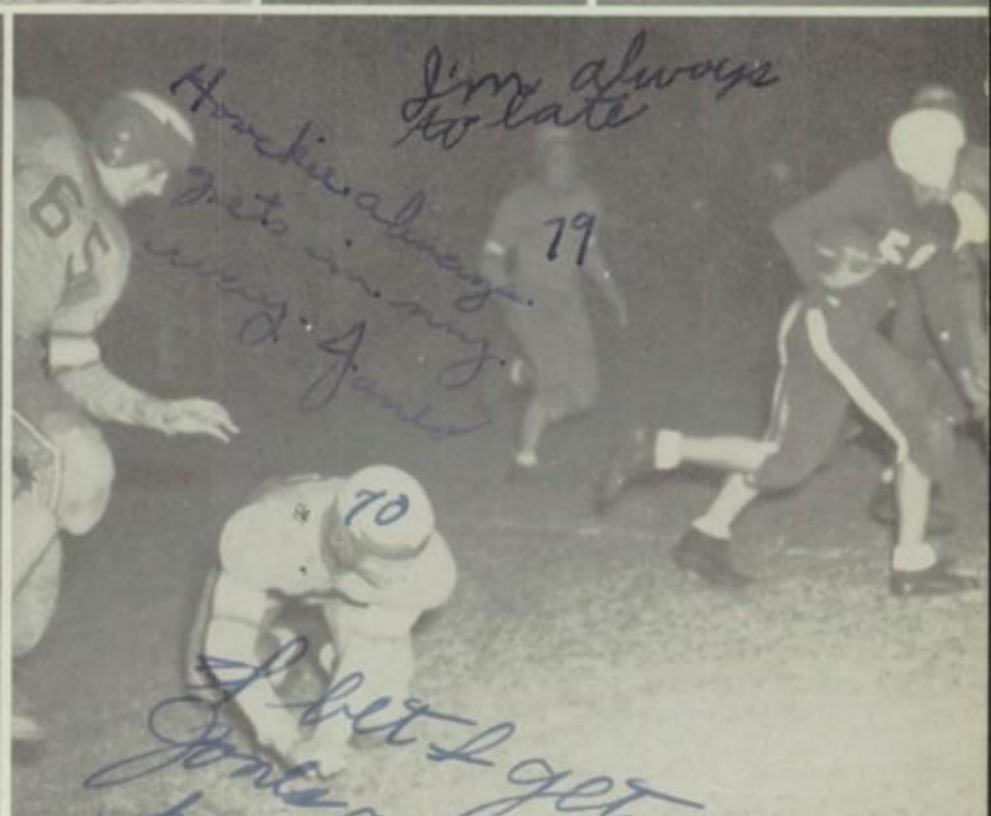 I'm always
to late
Howckie always
gets in my
way. Jones
65
79
70
I bet I get
Jones